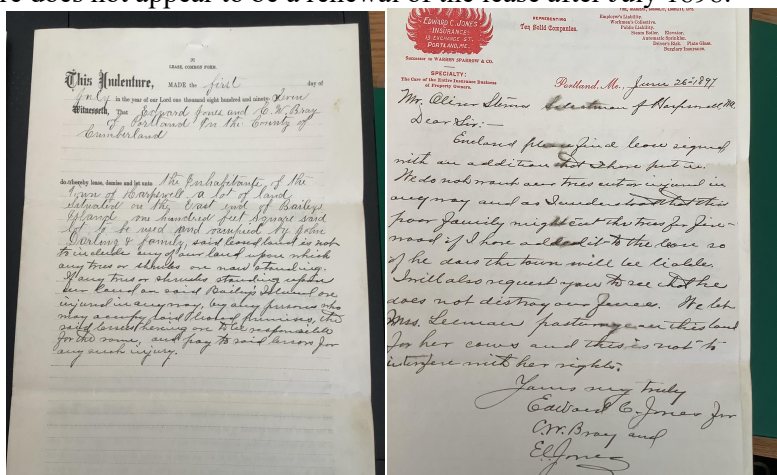 re does not appear to be a renewal of the lease after July 1898.
LEASE, COMMON FORM.
This Indenture, MADE the first day of
July in the year of our Lord one thousand eight hundred and ninety seven
Witnesseth, That Edward Jones and C. W. Bray
of Portland in the County of
Cumberland
do hereby lease, demise and let unto the Inhabitants, of the
Town of Harpswell a lot of land
situated on the East end of Bailey
Island one hundred feet square said
lot to be used and occupied by John
Darling & family, said leased land is not
to include any of our land upon which
any trees or shrubs are now standing.
If any trees or shrubs standing upon
our land on said Bailey's Island are
injured in any way, by any persons who
may occupy said leased premises, the
said lessees herein are to be responsible
for the same, and pay to said lessors for
any such injury.
EDWARD C. JONES
INSURANCE
13 EXCHANGE ST.
PORTLAND, ME.
Successor to WARREN SPARROW & CO.
REPRESENTING
Ten Solid Companies.
Employer's Liability.
Workmen's Collective.
Public Liability.
Steam Boiler. Elevator.
Automatic Sprinkler.
Driver's Risk. Plate Glass.
Burglary Insurance.
SPECIALTY:
The Care of the Entire Insurance Business
of Property Owners.
Portland, Me., June 26 1897
Mr. Oliver Stover Selectman of Harpswell Me.
Dear Sir:—
Enclosed please find lease signed
with an addition that I have put in.
We do not want our trees cut or injured in
any way and as I understand that this
poor family might cut the trees for fire-
wood if I have added it to the lease so
if he does the town will be liable.
I will also request you to see that he
does not distroy our fences. We let
Mrs. Leeman pasturage on this land
for her cows and this is not to
interfere with her rights.
Yours very truly
Edward C. Jones for
C. W. Bray and
E. C. Jones